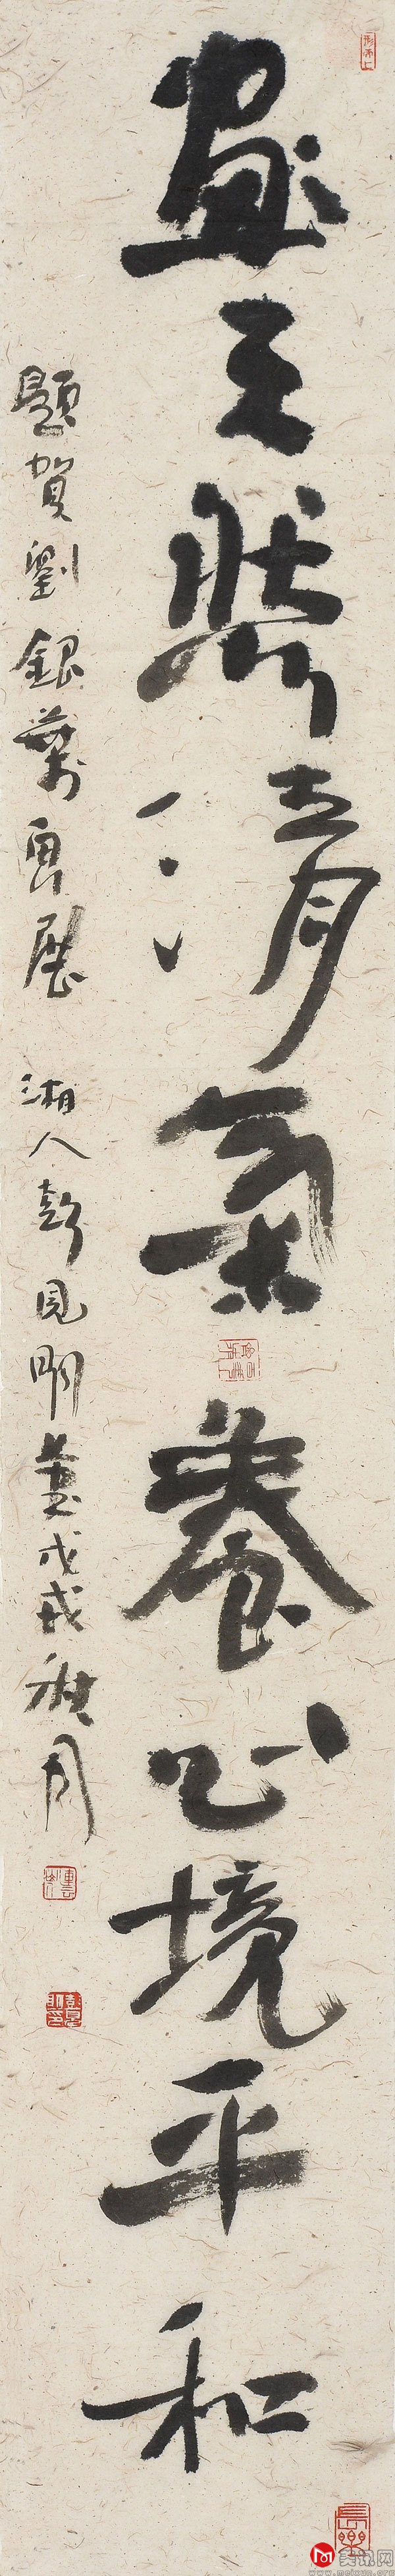 畫天然清氣養心境平和
題賀劉銀葉畫展 湘人彭見明書戊戌秋月
長樂
美讯网